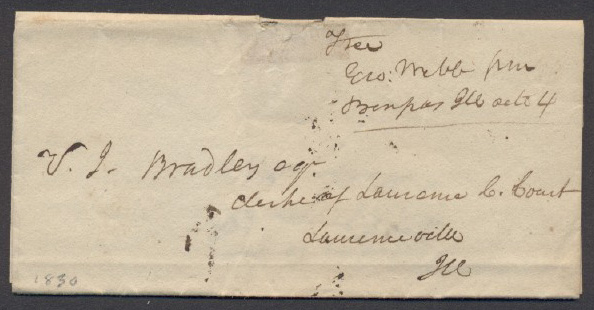 Free
Geo: Webb pm
Bonpas Ill octr 4
V. J. Bradley esqr
clerk of Laurence C. Court
Laurenceville
Ill
1830